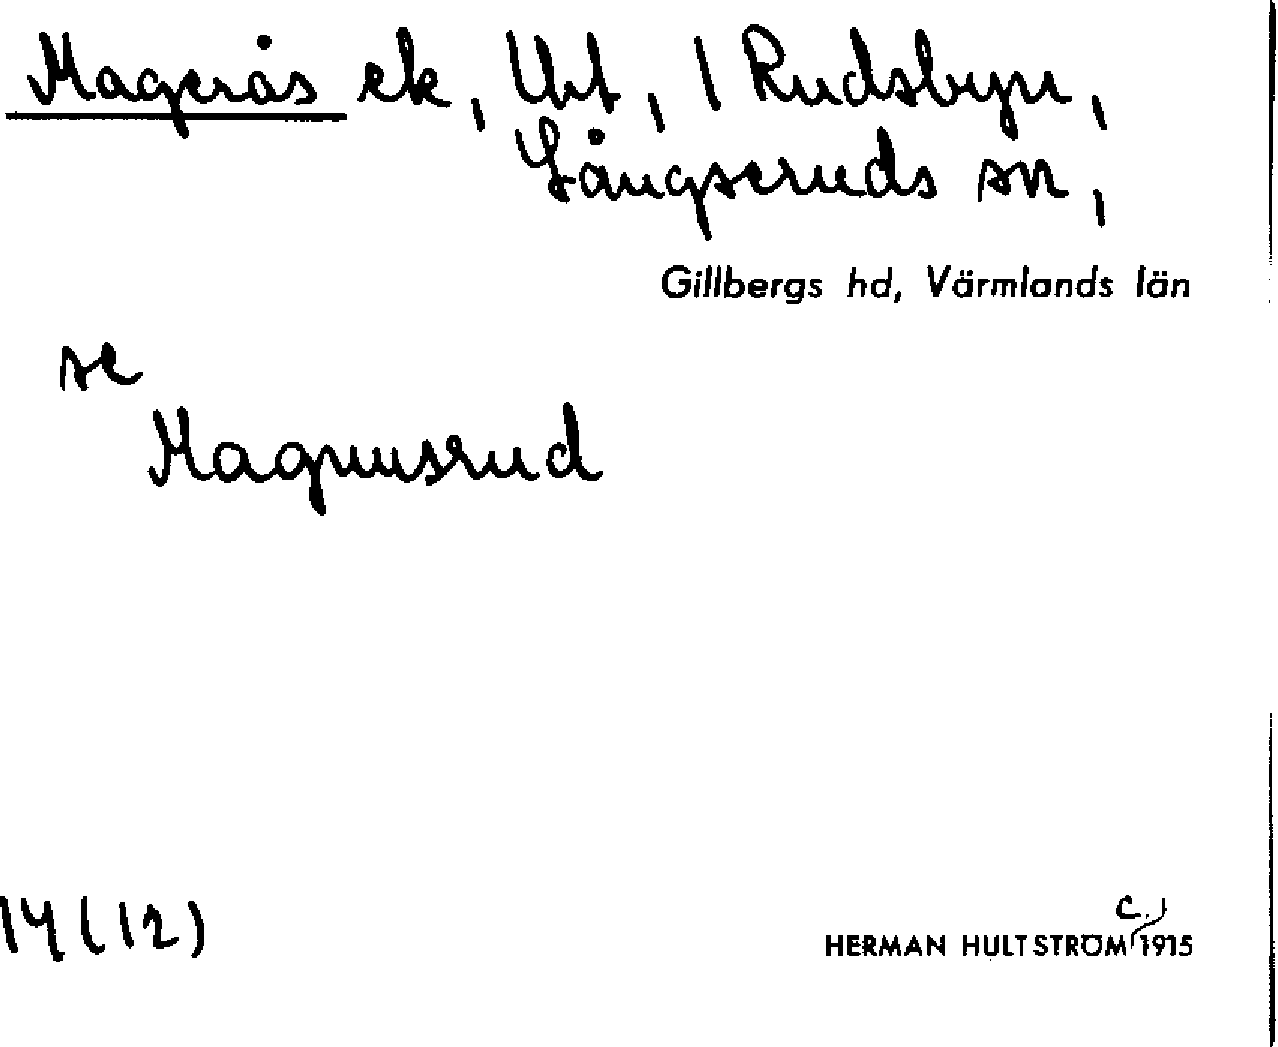 Magerås ek, Ubt, 1 Rudsbyn,
Långseruds sn,
Gillbergs hd, Värmlands län
se
Magnusrud
14 (12)
c.
HERMAN HULTSTRÖM 1915